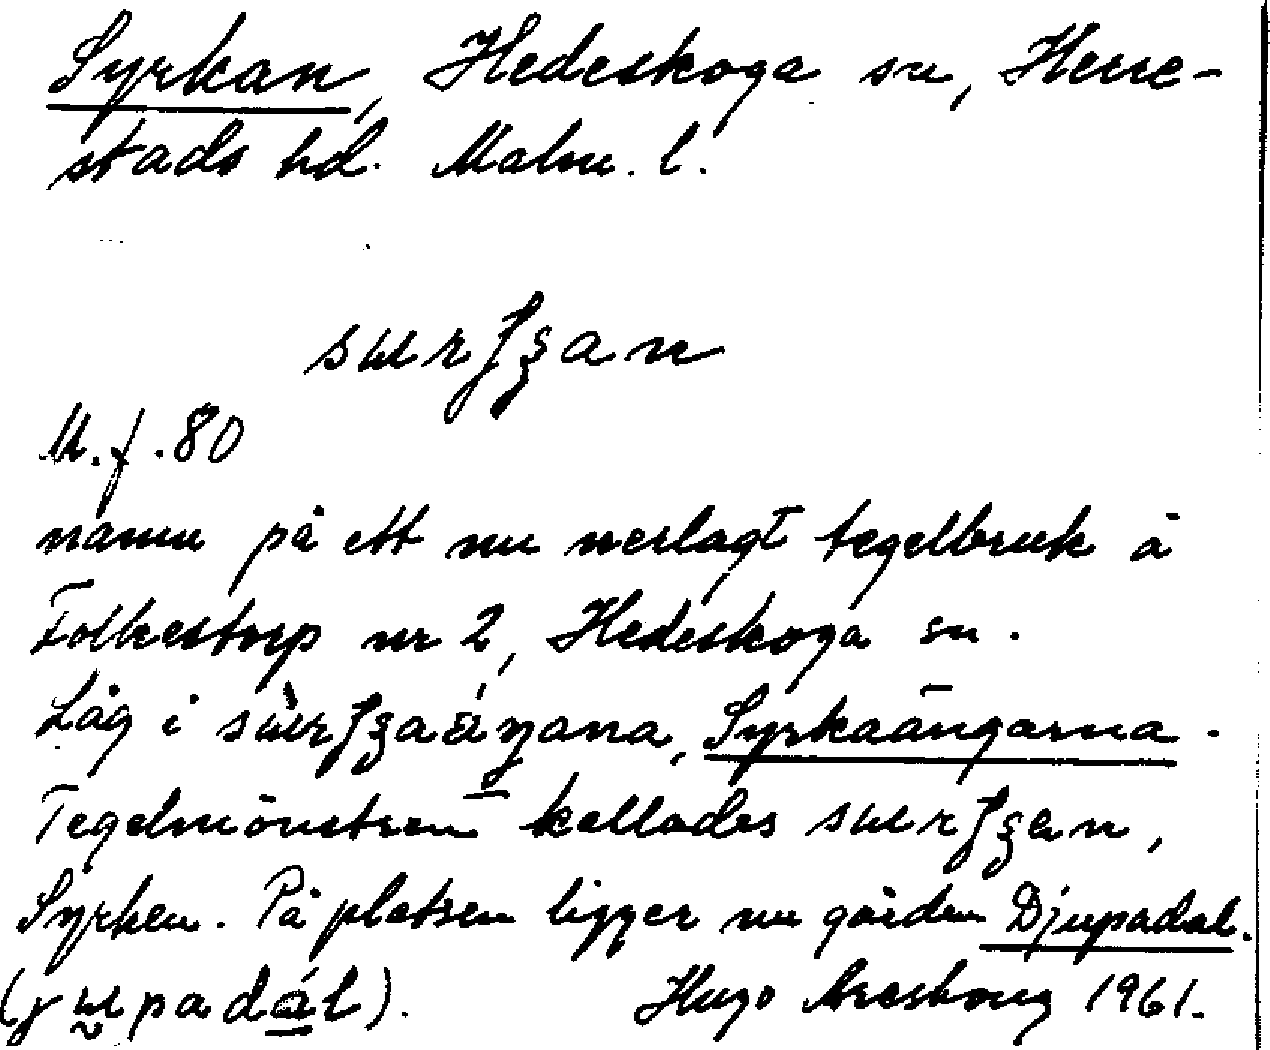 Syrkan, Hedeskoga sn, Herre-
stads hd. Malm. l.
M.f. 80
namn på ett nu nerlagt tegelbruk å
Folkestorp nr 2, Hedeskoga sn.
Låg i Syrkaängarna.
kallades
Syrken. På platsen ligger nu gården Djupadal.
Hugo Areskoug 1961.